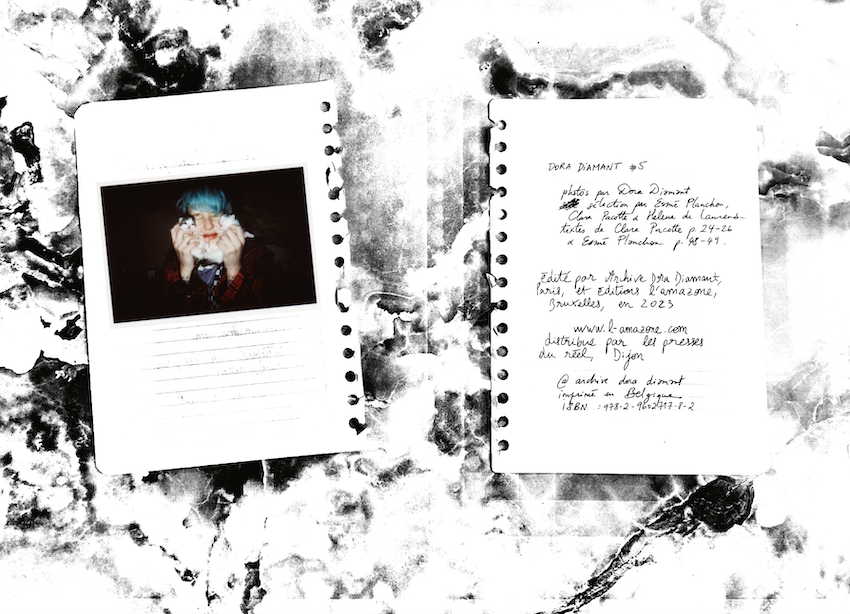 DORA DIAMANT #5
photos par Dora Diamant
sélection par Esmé Planchon,
Clara Pacotte & Helena de Laurens
textes de Clara Pacotte p. 24-26
& Esmé Planchon p. 48-49.
Edité par Archive Dora Diamant,
Paris, et Editions l'amazone,
Bruxelles, en 2023
www.l-amazone.com
distribué par les presses
du réel, Dijon
@ archive dora diamant
imprimé en Belgique
ISBN : 978-2-9602717-8-2